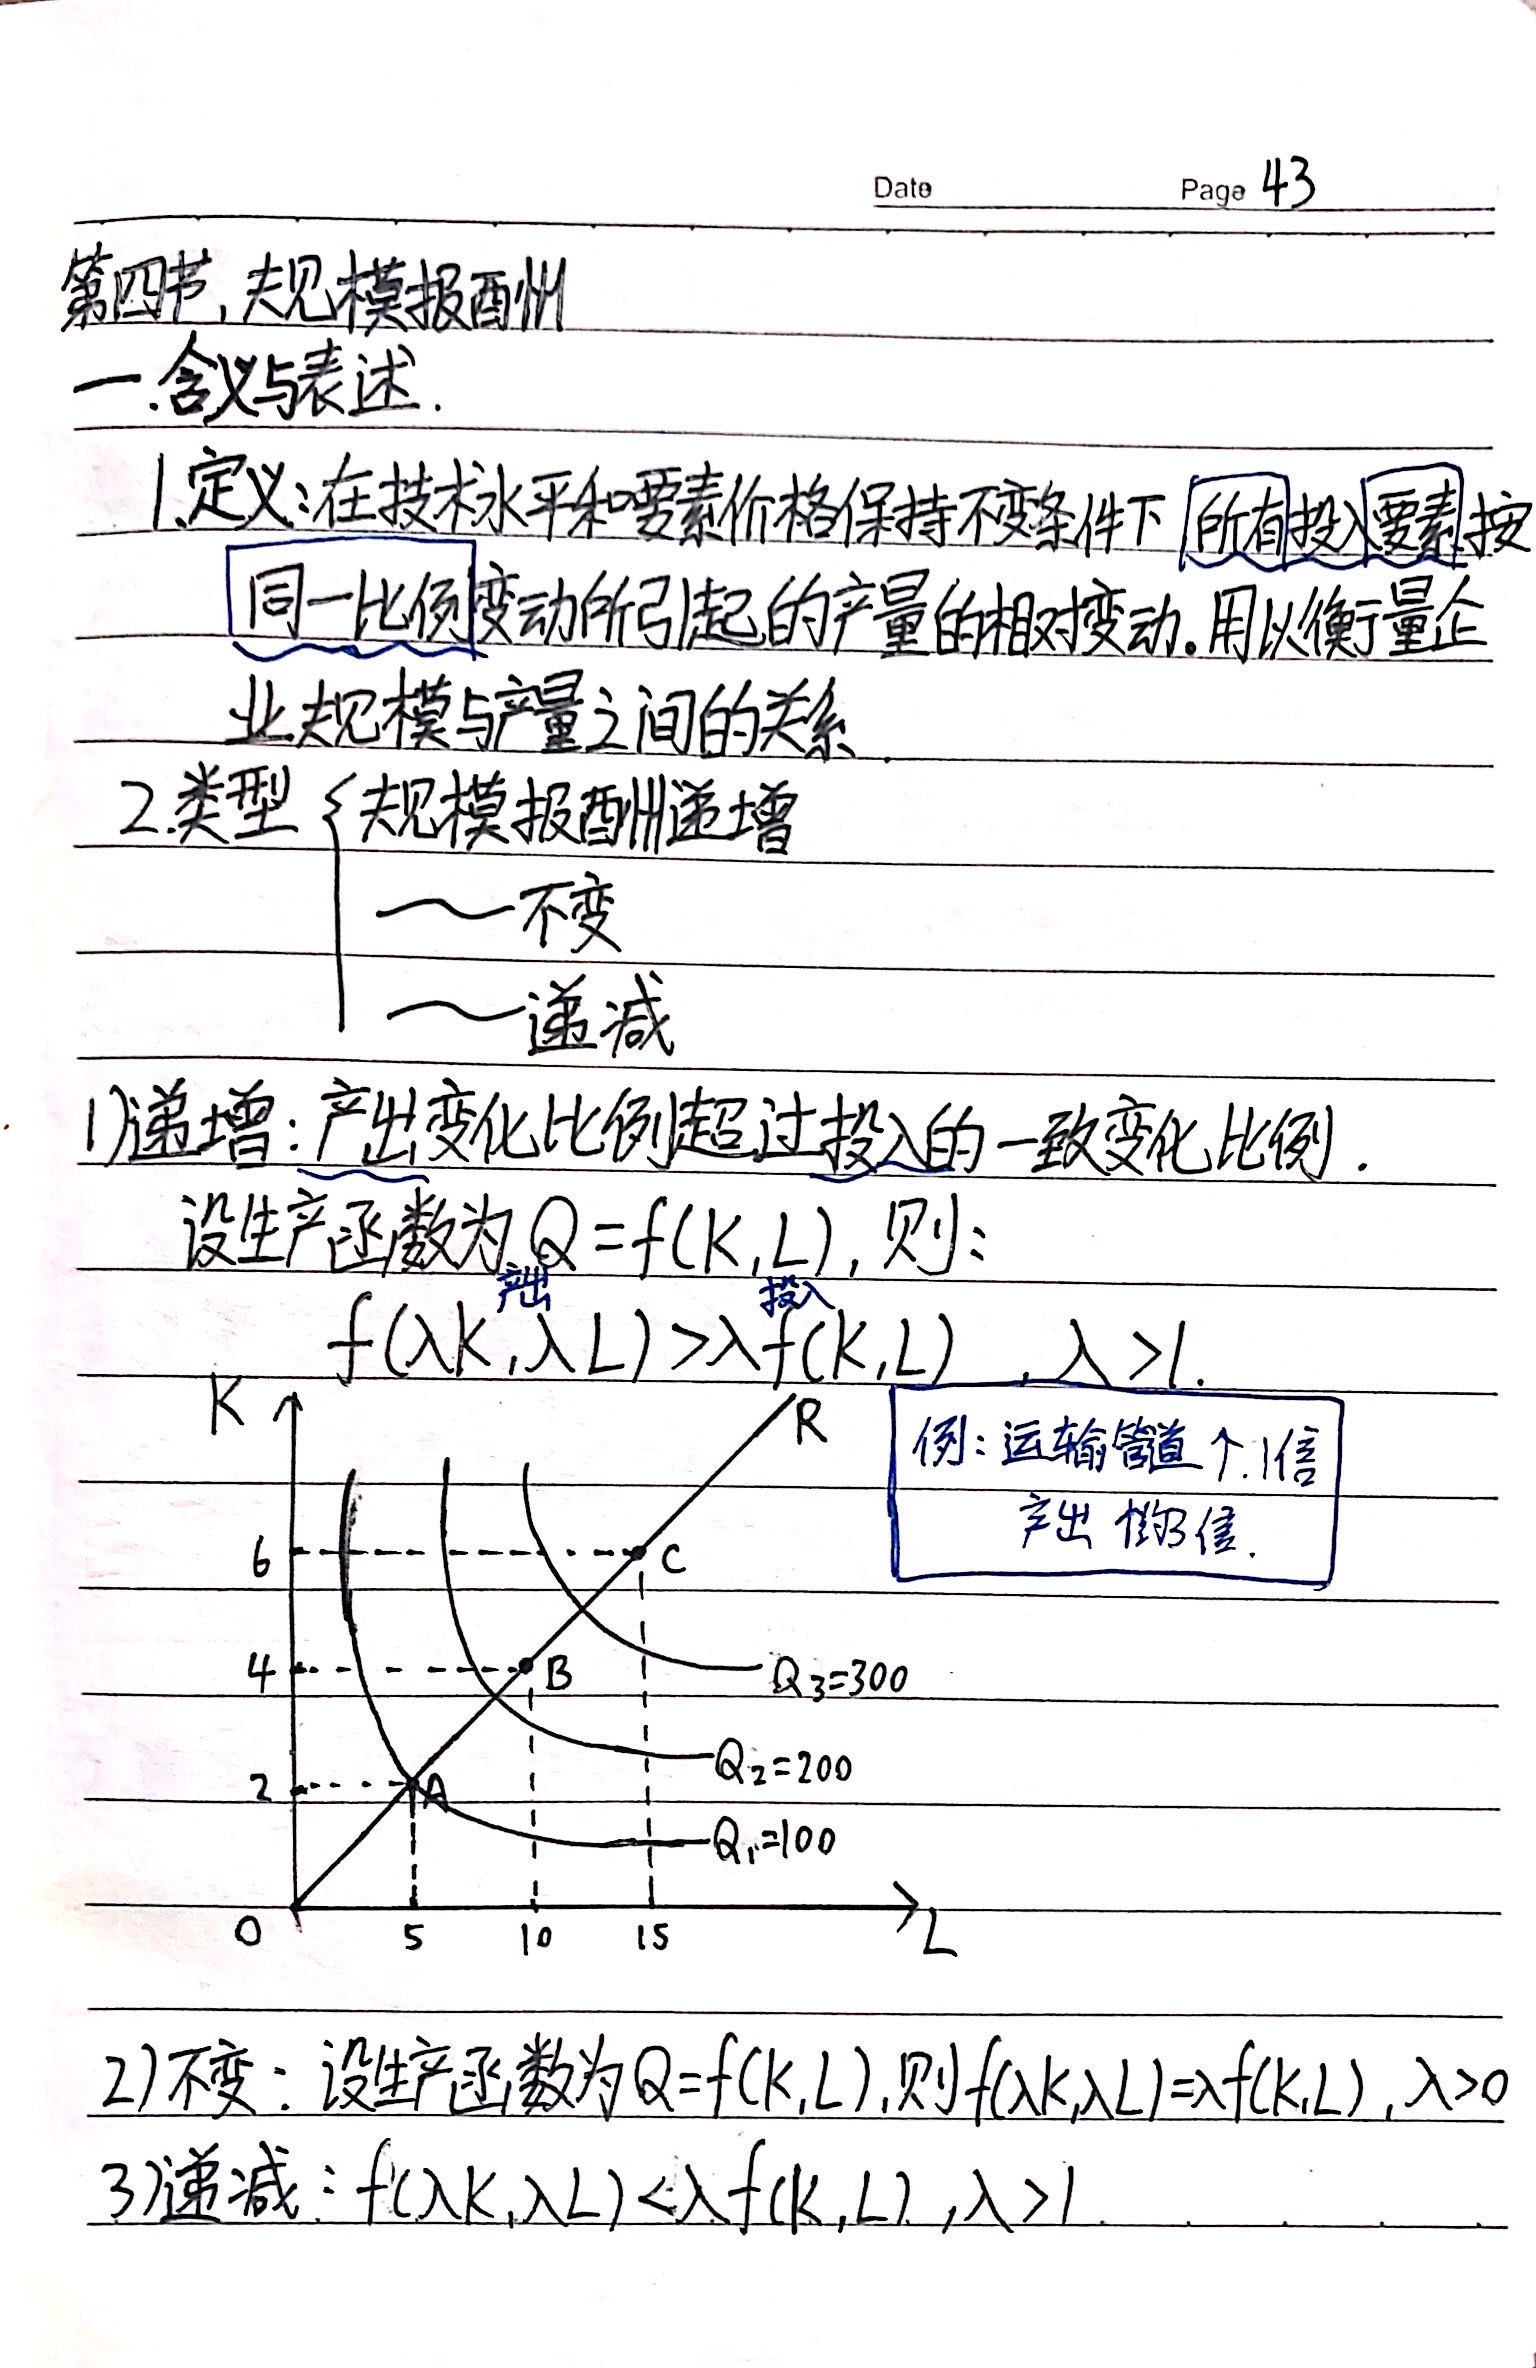 Date Page 43
第四节,规模报酬
一.含义与表述.
1.定义:在技术水平和要素价格保持不变条件下 所有投入要素按
同一比例变动所引起的产量的相对变动。用以衡量企
业规模与产量之间的关系.
2.类型 { 规模报酬递增
~不变
~递减
1)递增:产出变化比例超过投入的一致变化比例.
设生产函数为Q=f(K,L),则:
产出 投入
f(λK,λL)>λf(K,L) ,λ>1.
K R
例:运输管道↑1倍
产出
6 C
4 B
Q₃=300
Q₂=200
2 A
Q₁=100
0 5 10 15 L
2)不变:设生产函数为Q=f(K,L),则f(λK,λL)=λf(K,L),λ>0
3)递减:f(λK,λL)<λf(K,L),λ>1